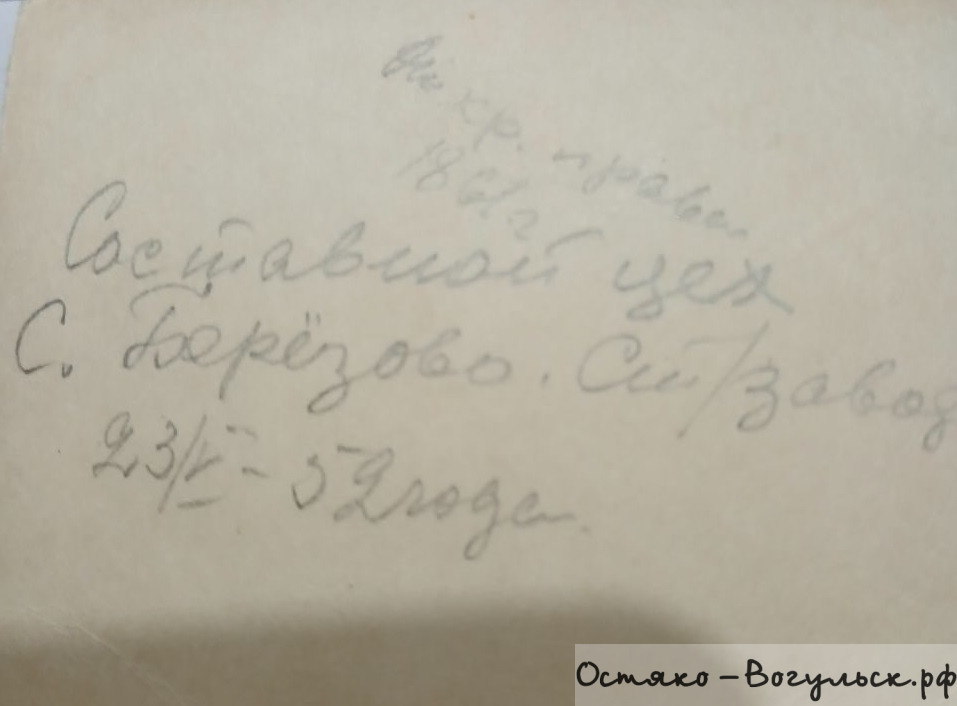 кр. правая
186 г.
Составной цех
С. Берёзово. Ст/завод
23/V - 52 года.
Остяко-Вогульск.рф